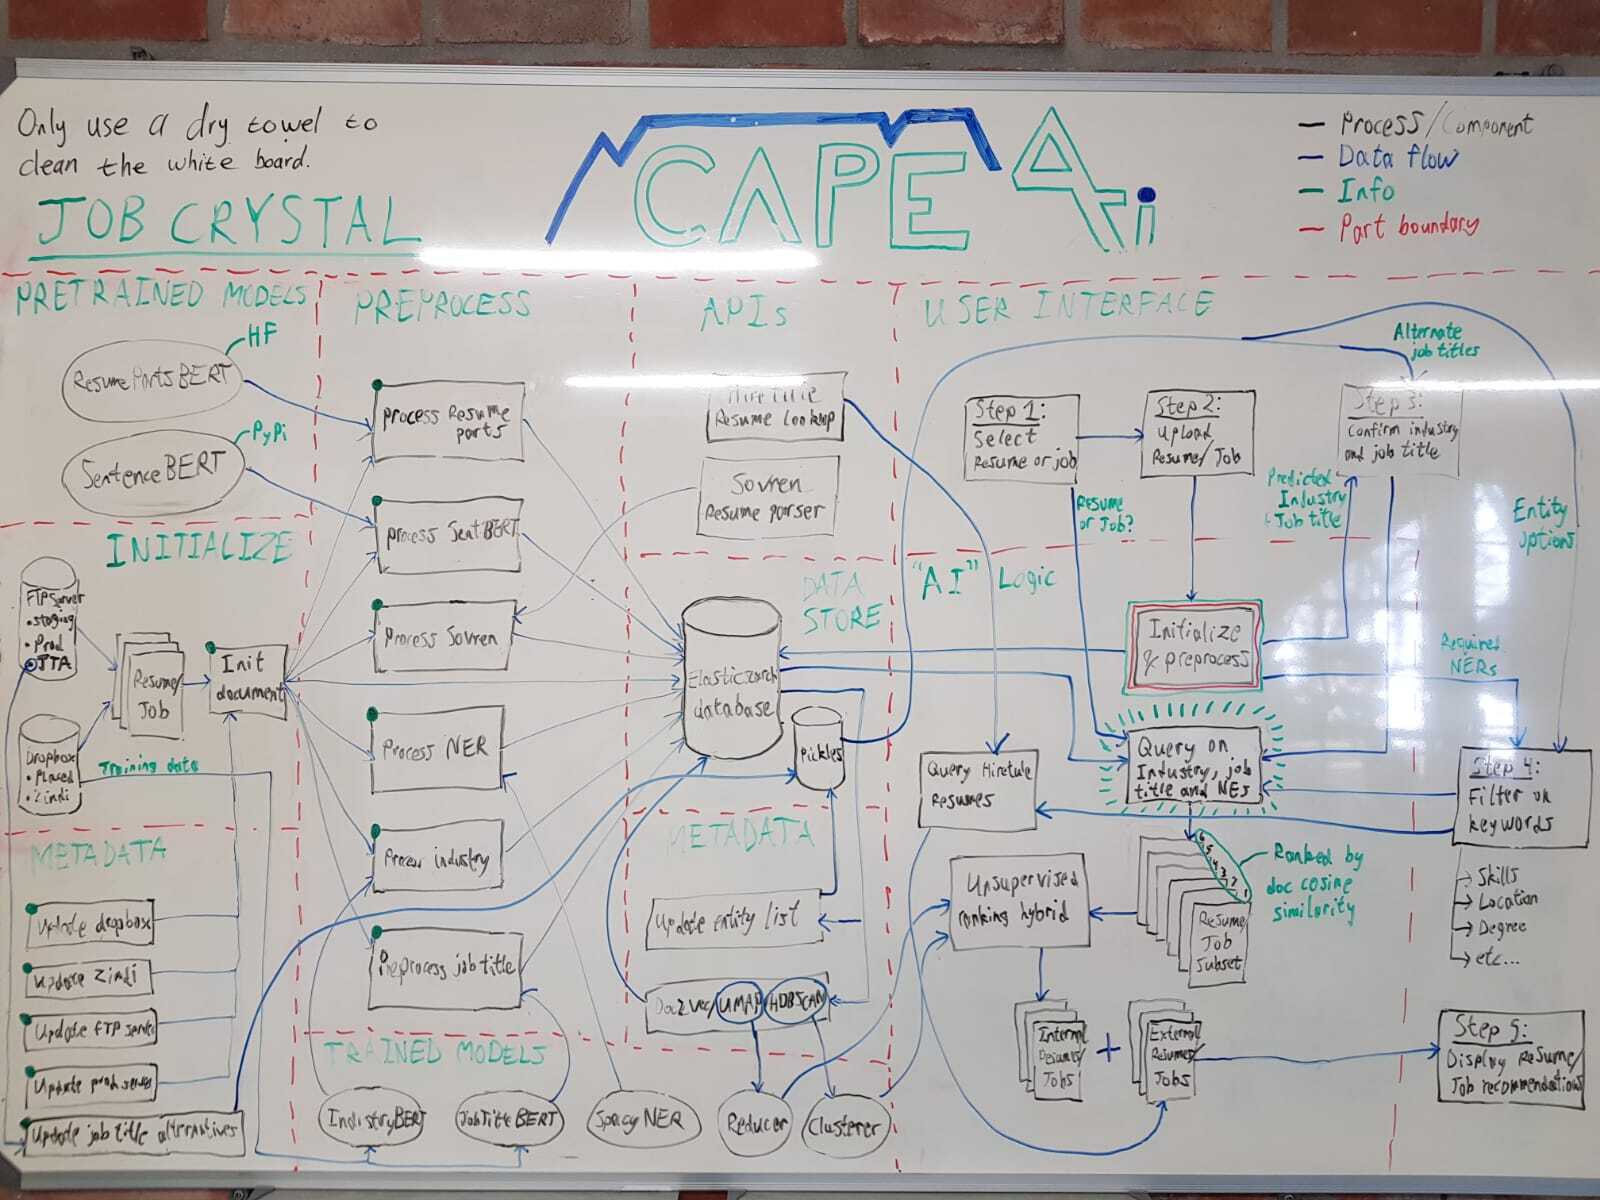 Only use a dry towel to
clean the white board.
JOB CRYSTAL
CAPE Ai
— Process/Component
— Data flow
— Info
— Part boundary
PRETRAINED MODELS
HF
ResumePartsBERT
PyPi
SentenceBERT
INITIALIZE
FTP Server
• Staging
• Prod
• JTA
Dropbox
• Placed
• Zindi
Resume/
Job
Init
document
Training data
METADATA
Update dropbox
Update Zindi
Update FTP server
Update prod server
Update job title alternatives
PREPROCESS
Process Resume
parts
Process SentBERT
Process Sovren
Process NER
Process industry
Preprocess job title
TRAINED MODELS
IndustryBERT
JobTitleBERT
Spacy NER
Reducer
Clusterer
APIs
Hiretule
Resume Lookup
Sovren
Resume parser
DATA
STORE
Elasticsearch
database
Pickles
METADATA
Update entity list
Doc2Vec/UMAP/HDBSCAN
USER INTERFACE
Alternate
job titles
Step 1:
Select
Resume or job
Step 2:
Upload
Resume/Job
Step 3:
Confirm industry
and job title
Resume
or Job?
Predicted
Industry
+ Job title
Entity
options
"AI" Logic
Initialize
& preprocess
Required
NERs
Query Hiretule
Resumes
Query on
Industry, job
title and NEs
Step 4:
Filter on
keywords
Skills
Location
Degree
etc...
Unsupervised
ranking hybrid
6
5
4
3
2
1
Resume/
Job
Subset
Ranked by
doc cosine
similarity
Internal
Resumes/
Jobs
+
External
Resumes/
Jobs
Step 5:
Display Resume/
Job recommendations